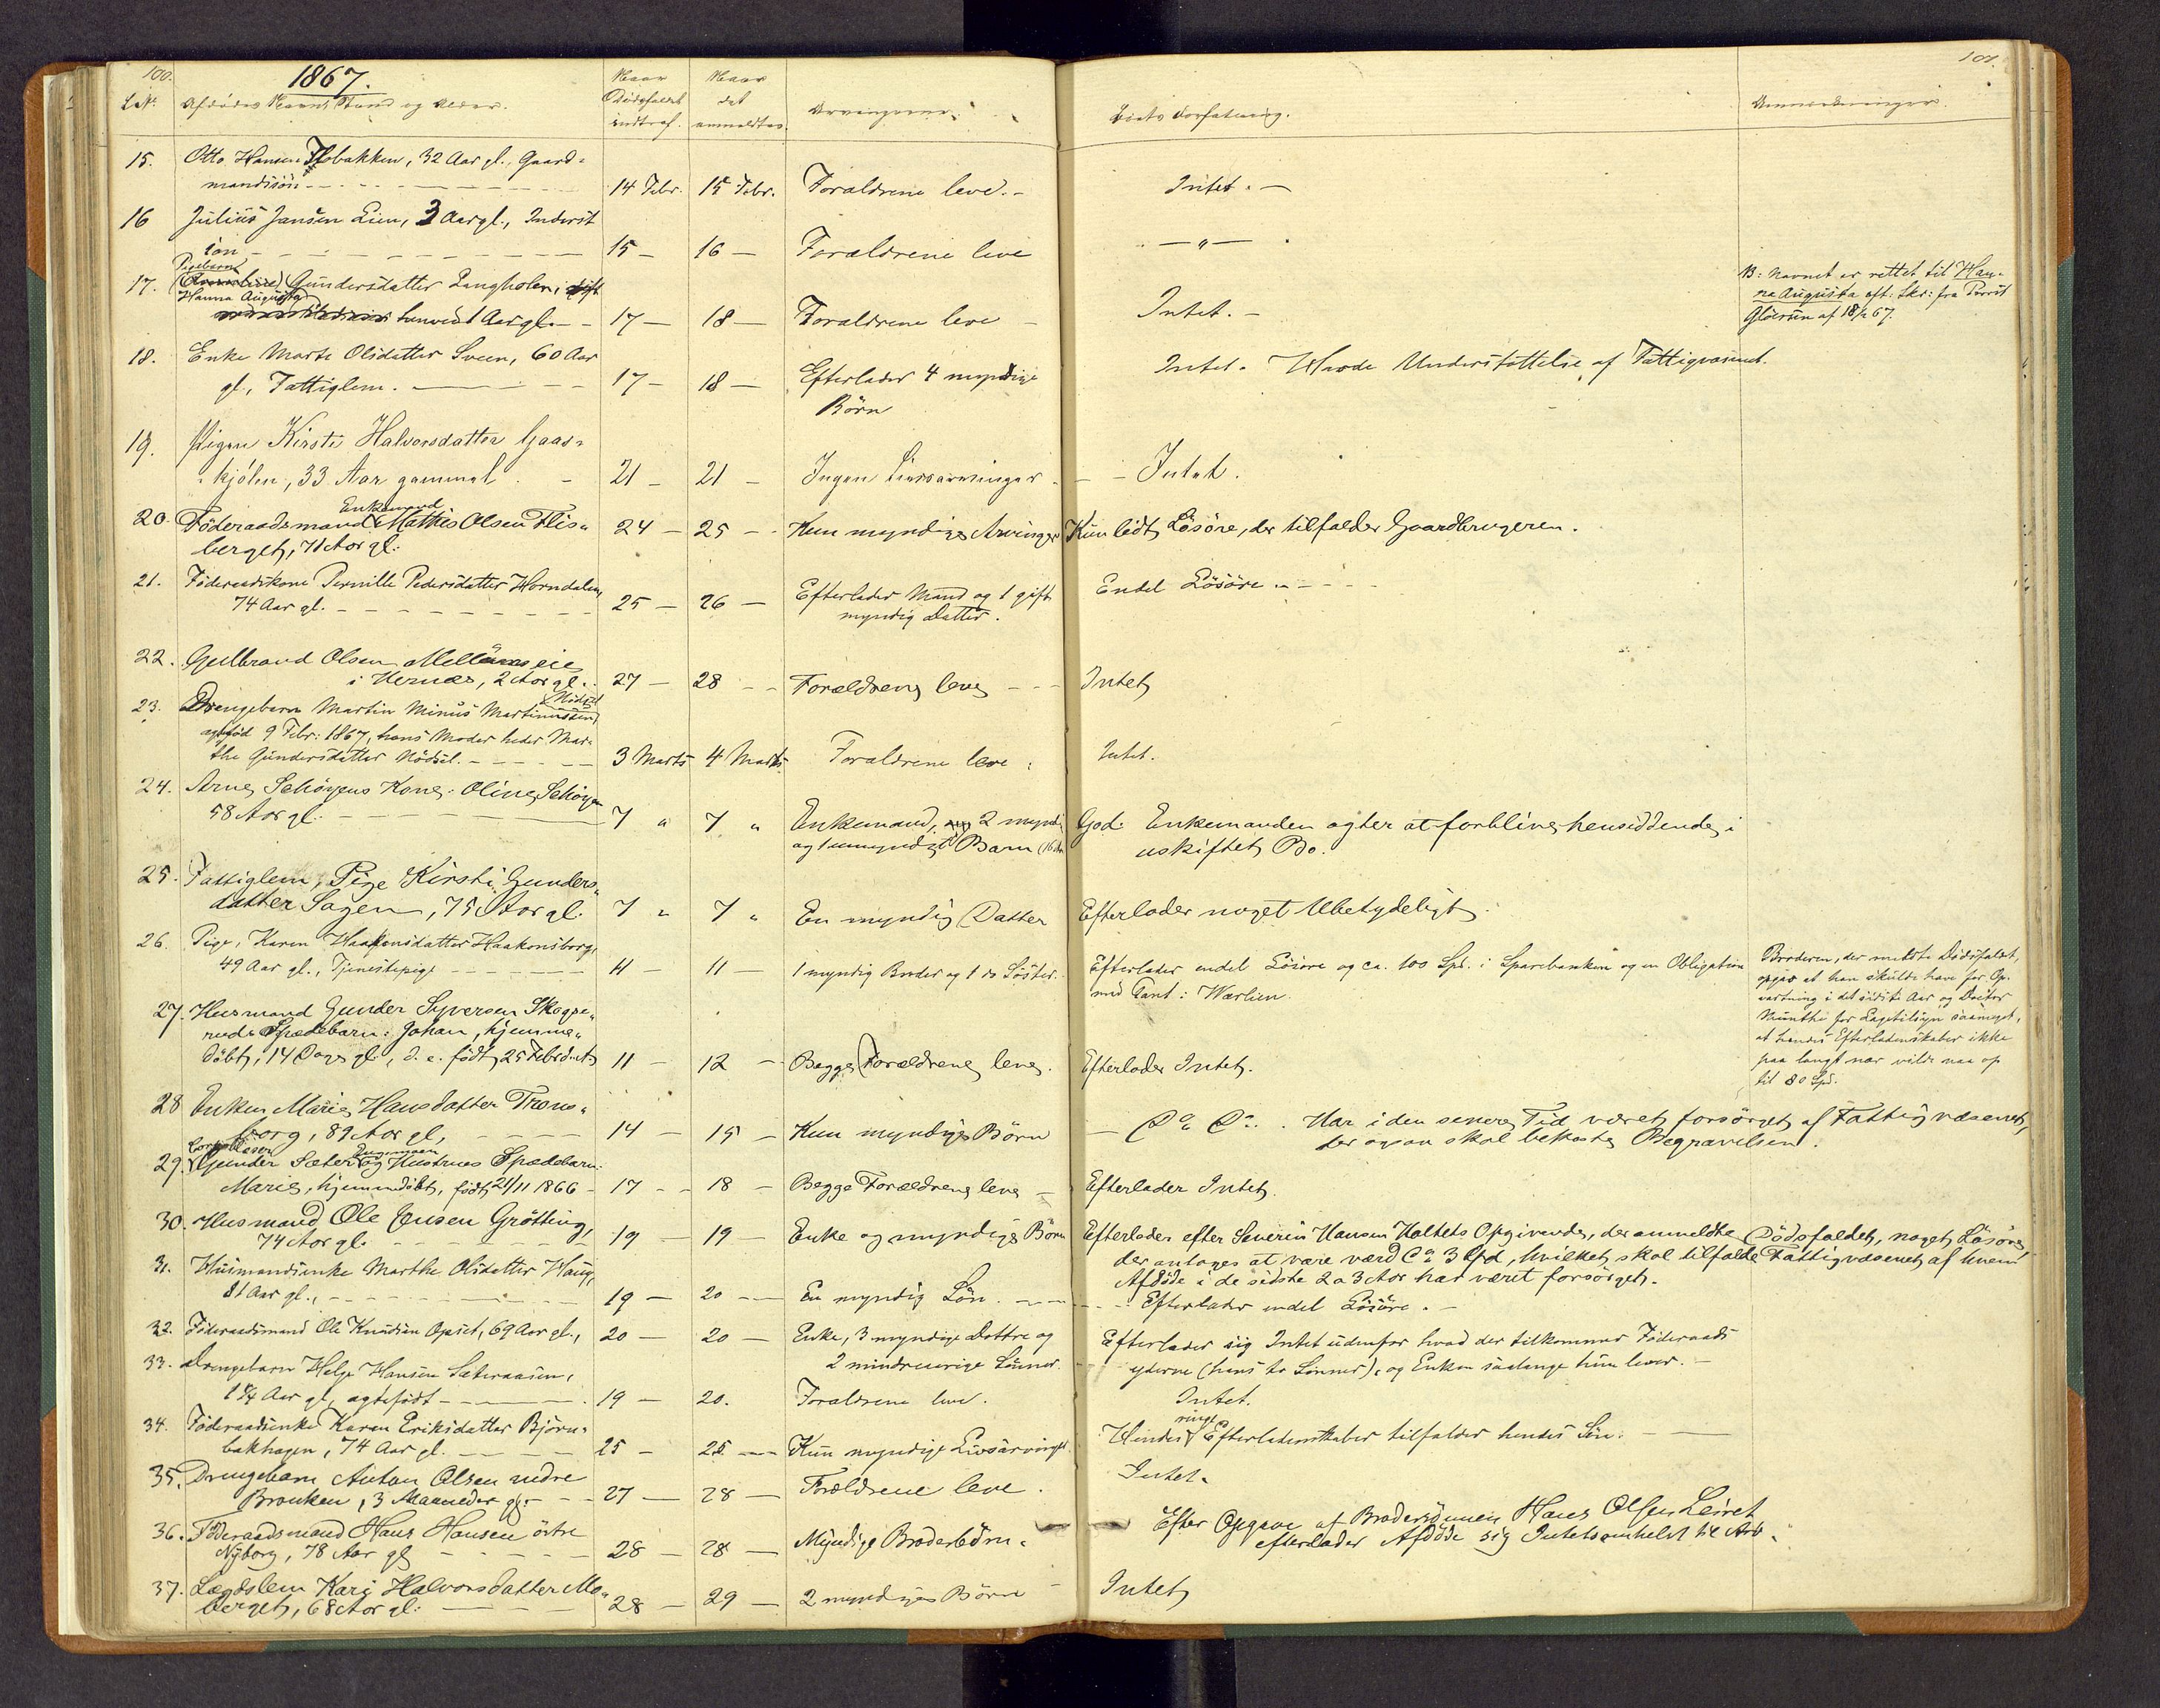 100.
1867.
101.
L. No. Afdødes Navn, Stand og Alder. Naar Dødsfaldet indtraf. Naar det anmeldtes. Arvingerne. Boets Forfatning. Anmærkninger.
15. Otto Hansen Flobakken, 32 Aar gl., Gaard-
mandssøn 14 Febr. 15 Febr. Forældrene leve. Intet.
16 Julius Jansen Lien, 3 Aar gl., Inderst
søn 15 — 16 — Forældrene leve — " —
Pigebarn
17. Gundersdatter Langholen,
Hanna Augusta
henved 1 Aar gl. 17 — 18 — Forældrene leve Intet.
NB: Navnet er rettet til Han-
na Augusta eft: Skr: fra Provst
Gløersen af 18/2 67.
18. Enke Marte Olsdatter Sveen, 60 Aar
gl., Fattiglem. 17 — 18 — Efterlader 4 myndige
Börn
Intet. Havde Understøttelse af Fattigvæsenet.
19. Pigen Kirsti Halvorsdatter Gaas-
kjölen, 33 Aar gammel. 21 — 21 — Ingen Livsarvinger Intet.
Enkemand
20. Föderaadsmand Mathis Olsen Flis-
berget, 71 Aar gl. 24 — 25 — Kun myndige Arvinger Kun lidt Lösöre, der tilfalder Gaardbrugeren.
21. Föderaadskone Pernille Pedersdatter Horndalen,
74 Aar gl. 25 — 26 — Efterlader Mand og 1 gift
myndig Datter. Endel Lösöre
22. Gulbrand Olsen Mellemeie
i Hernæs, 2 Aar gl. 27 — 28 — Forældrene leve Intet
23. Drengebarn Martin Minus Martinussen Nödset
født 9 Febr: 1867, hans Moder heder Mar-
the Gundersdatter Nödset. 3 Marts 4 Marts. Forældrene leve Intet.
24. Arne Schöyens Kone: Oline Schöyen
58 Aar gl. 7 " 7 " Enkemand, 2 myndige
og 1 umyndigt Barn (16 Aar
God. Enkemanden agter at forblive hensiddende i
uskiftet Bo.
25. Fattiglem, Pige Kirsti Gunders-
datter Sagen, 75 Aar gl. 7 " 7 " En myndig Datter Efterlader noget Ubetydeligt.
26. Pige, Karen Haakonsdatter Haakonsborg,
49 Aar gl., Tjenestepige 11 — 11 — 1 myndig Broder og 1 do Söster.
Efterlader endel Lösöre og ca. 100 Spd. i Sparebanken og en Obligation
med Pant: Wærlien.
Broderen, der meldte Dödsfaldet,
opgav at han skulde have for Op-
vartning i det sidste Aar og Doctor
Munthe for Lægetilsyn saameget,
at hendes Efterladenskaber ikke
paa langt nær vilde naa op
til 80 Spd.
27. Husmand Gunder Syversen Skogse-
ruds Spædebarn: Johan, hjemme-
döbt, 14 Dage gl., d. e. födt 25 Febr d. A. 11 — 12 — Begge Forældrene leve. Efterlader Intet.
28 Enken Marie Hansdatter Trons-
borg, 89 Aar gl, 14 — 15 — Kun myndige Börn
— Do Do. Har i den senere Tid været forsörget af Fattigvæsenet,
der ogsaa skal bekoste Begravelsen.
29. Gunder Sæter og Hustrues Spædebarn:
Marie, hjemmedöbt, födt 21/11 1866 17 — 18 — Begge Forældrene leve Efterlader Intet.
30. Husmand Ole Jensen Grötting,
74 Aar gl. 19 — 19 — Enke og myndige Börn
Efterlader efter Severin Hansen Holtets Opgivende, der anmeldte Dödsfaldet, noget Lösöre,
der antages at være værd Ca 3 Spd, hvilket skal tilfalde Fattigvæsenet af hvem
Afdöde i de sidste 2 a 3 Aar har været forsörget.
31. Husmandsenke Marthe Olsdatter Haug,
81 Aar gl., 19 — 20 — En myndig Sön. Efterlader endel Lösöre.
32. Föderaadsmand Ole Knudsen Opset, 69 Aar gl., 20 — 20 — Enke, 3 myndige Döttre og
2 mindreaarige Sönner.
Efterlader sig Intet udenfor hvad der tilkommer Föderaads-
yderne (hans to Sönner), og Enken saalange hun lever.
33. Drengebarn Helge Hansen Sæteraasen,
1 1/4 Aar gl, ægtefödt 19 — 20. Forældrene leve. Intet.
34. Föderaadsenke Karen Eriksdatter Björn-
bakhagen, 74 Aar gl. 25 — 25 — Kun myndige Livsarvinger
Hendes ringe Efterladenskaber tilfalder hendes Sön.
35. Drengebarn Anton Olsen nedre
Brouken, 3 Maaneder gl. 27 — 28 — Forældrene leve. Intet.
36. Föderaadsmand Hans Hansen östre
Nyborg, 78 Aar gl 28 — 28 — Myndige Broderbörn.
Efter Opgave af Brodersönnen Hans Olsen Leiret
efterlader Afdöde sig Intetsomhelst til Arv.
37. Lægdslem Kari Halvorsdatter Mo-
berget, 68 Aar gl. 28 — 29 — 2 myndige Börn Intet